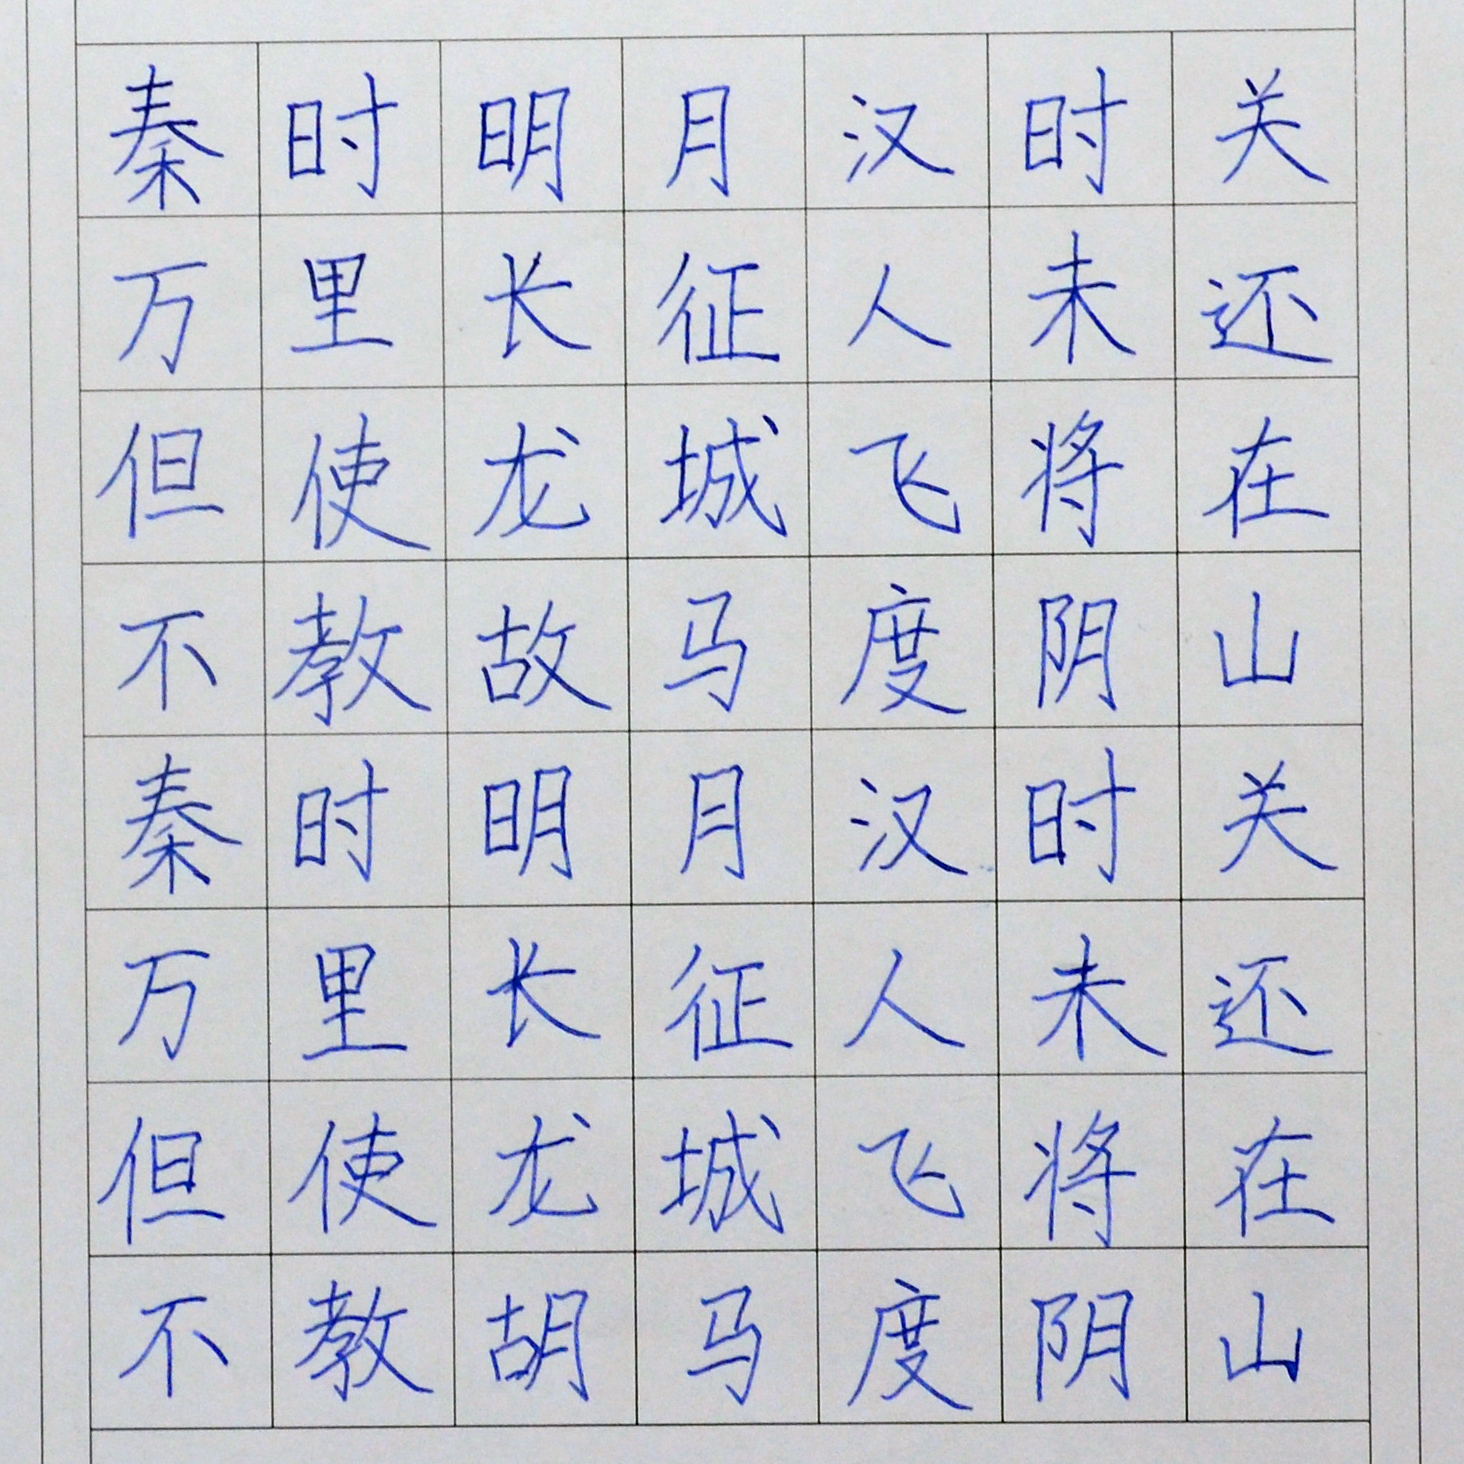 秦时明月汉时关
万里长征人未还
但使龙城飞将在
不教故马度阴山
秦时明月汉时关
万里长征人未还
但使龙城飞将在
不教胡马度阴山